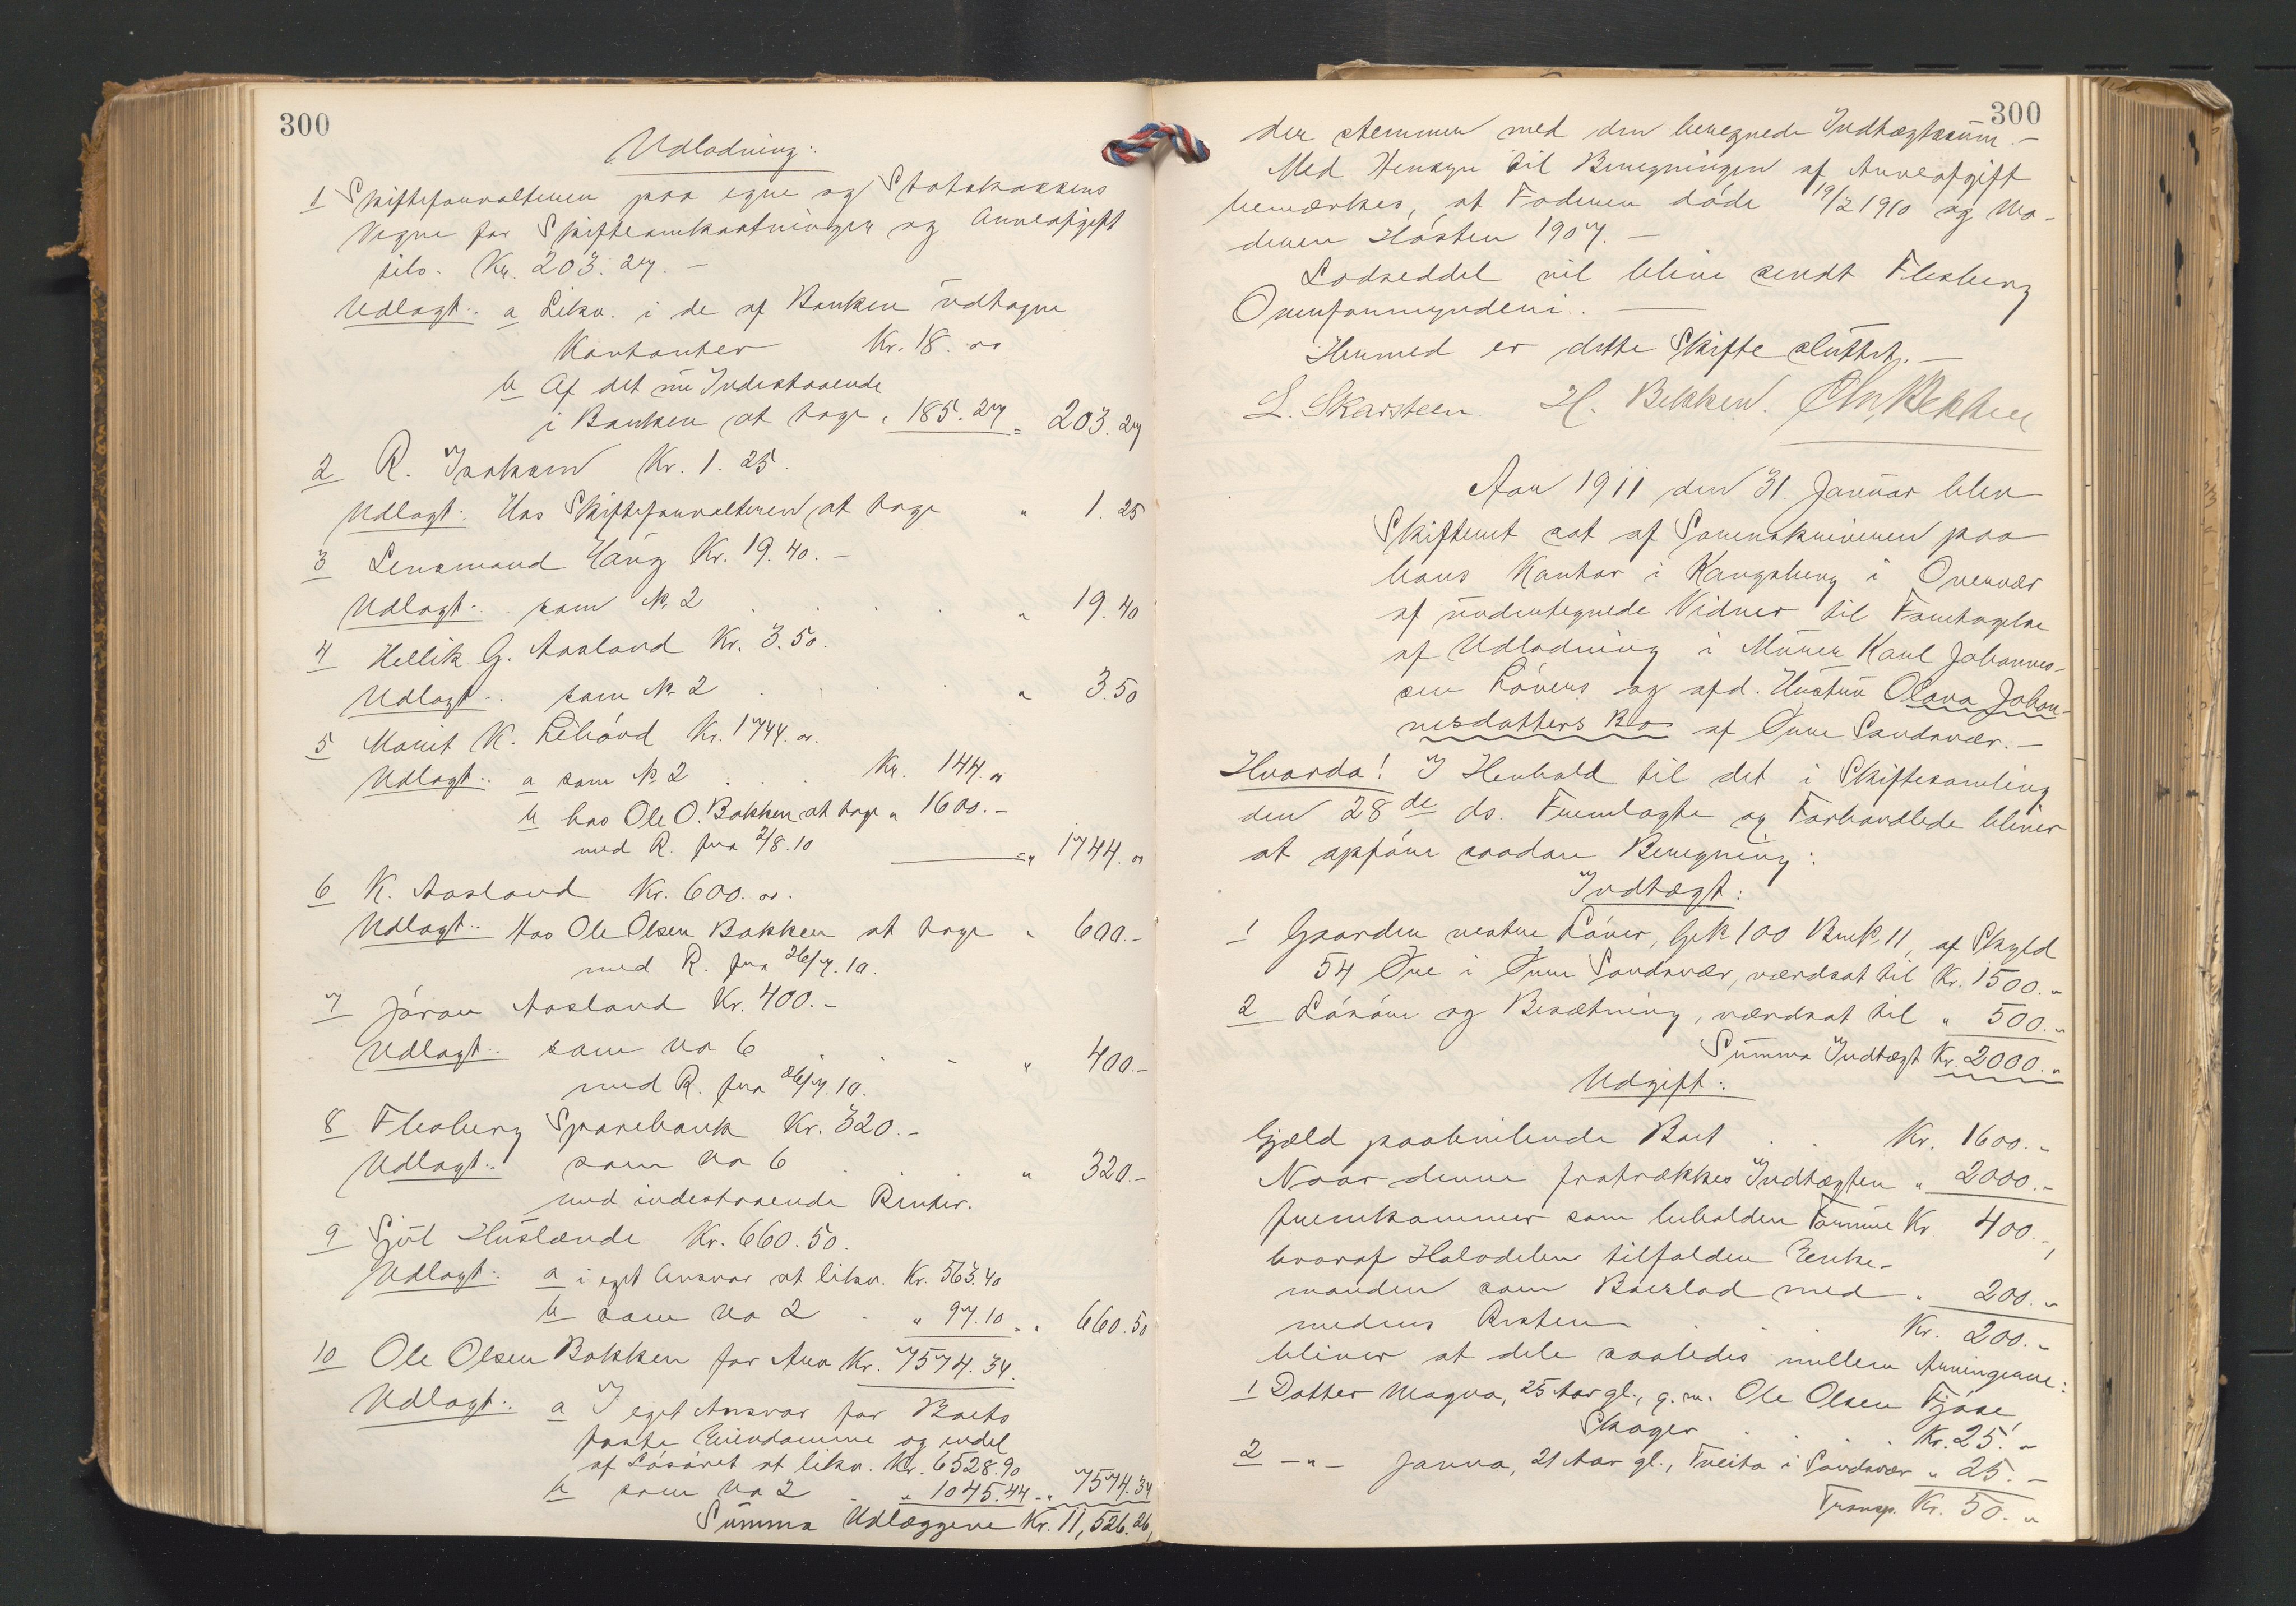 300
Udlodning:
1 Skifteforvalteren paa egne og Statskassens
Vegne for Skifteomkostninger og Arveafgift
tils. Kr. 203.27.-
Udlagt: a Likv. i de af Banken udtagne
Kontanter Kr. 18.00
b Af det nu Indestaaende
i Banken at tage " 185.27 = 203.27
2 R. Isaksen Kr. 1.25.
Udlagt: Hos Skifteforvalteren at tage " 1.25
3 Lensmand Haug Kr. 19.40.-
Udlagt: som No 2 . . . . " 19.40
4 Hellik G. Aasland Kr. 3.50.
Udlagt: som No 2 . . . . " 3.50
5 Marit K. Lihövd Kr. 1744.00.
Udlagt: a som No 2 . . . Kr. 144.00
b hos Ole O. Bakken at tage " 1600.-
med R. fra 2/8.10 = " 1744.00
6 K. Aasland Kr. 600.00.
Udlagt: Hos Ole Olsen Bakken at tage " 600.-
med R. fra 26/7.10.
7 Jöran Aasland Kr. 400.-
Udlagt: som No 6 . . . " 400.-
med R. fra 26/7.10.
8 Flesberg Sparebank Kr. 320.-
Udlagt: som No 6 . . . " 320.-
med indestaaende Renter.
9 Sjul Huslænde Kr. 660.50.
Udlagt: a i eget Ansvar at likv. Kr. 563.40
b som No 2 . " 97.10 = " 660.50
10 Ole Olsen Bakken for Arv Kr. 7574.34.
Udlagt: a I eget Ansvar for Boets
faste Eiendomme og endel
af Lösöret at likv. Kr. 6528.90
b som No 2 . " 1045.44 = " 7574.34
Summa Udlæggene Kr. 11,526.26,
300
der stemmer med den beregnede Indtægtssum.-
Med Hensyn til Beregningen af Arveafgift
bemærkes, at Faderen döde 19/2 1910 og Mo-
deren Hösten 1907.-
Lodseddel vil blive sendt Flesberg
Overformynderi.
Hermed er dette Skifte sluttet.-
L. Skarsteen. H. Bekken. Chr. Bekken
Aar 1911 den 31. Januar blev
Skifteret sat af Sorenskriveren paa
hans Kontor i Kongsberg i Overvær
af undertegnede Vidner til Foretagelse
af Udlodning i Murer Karl Johannes-
sen Lövers og afd. Hustru Olava Johan-
nesdatters Bo af Övre Sandsvær.-
Hvorda! I Henhold til det i Skiftesamling
den 28de ds. Fremlagte og Forhandlede bliver
at opföre saadan Beregning:
Indtægt:
1 Gaarden vestre Löver, Gr No 100 Br No 11, af Skyld
54 Öre i Övre Sandsvær, værdsat til Kr. 1500.-
2 Lösöre og Besætning, værdsat til " 500.-
Summa Indtægt Kr. 2000.-
Udgift:
Gjæld paahvilende Boet . . Kr. 1600.-
Naar denne fratrækkes Indtægten " 2000.-
fremkommer som beholden Formue Kr. 400.-,
hvoraf Halvdelen tilfalder Enke-
manden som Boeslod med " 200.-
medens Resten . . . Kr. 200.-
bliver at dele saaledes mellem Arvingerne:
1 Datter Magna, 25 Aar gl., g. m. Ole Olsen Fjöse
Skoger . . . . Kr. 25.-
2 -"- Janna, 21 Aar gl., Tveita i Sandsvær " 25.-
Transp. Kr. 50.-